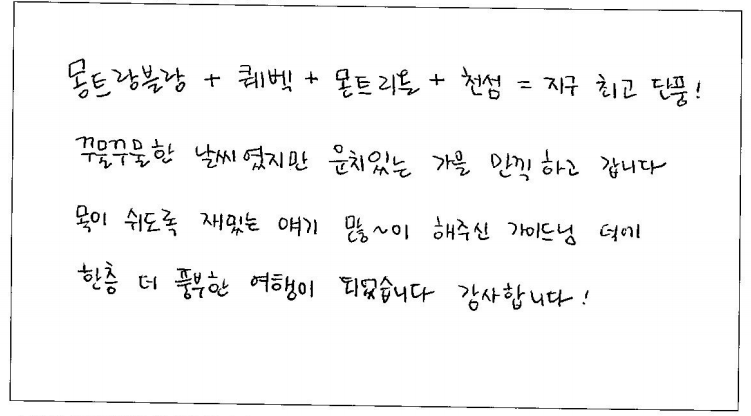 몽트랑블랑 + 퀘벡 + 몬트리올 + 천섬 = 지구 최고 단풍!
꾸물꾸물한 날씨였지만 운치있는 가을 만끽하고 갑니다
목이 쉬도록 재밌는 얘기 많~이 해주신 가이드님 덕에
한층 더 풍부한 여행이 되었습니다 감사합니다!